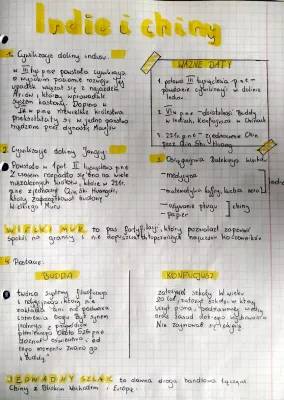 Indie i chiny
1. Cywilizacje doliny indusu
w III tyś pne powstała cywilizacja
o wysokim poziomie rozwoju. Jej
upadek wiązał się z najazdem
Ariów, którzy wprowadzili
system kastowy. Dopiero w
IV w pne niewielkie królestwa
przekształciły się w jedno państwo
rządzone przez dynastię Maurjów
WAŻNE DATY
1. połowa III tysiąclecia p.n.e -
powstanie cywilizacji w dolinie
Indusu
2. VI w pne - działalność Buddy
w Indiach, Konfucjusza w Chinach
3. 221r. pne - zjednoczenie Chin
przez Qin Shi Huanga
2. Cywilizacje doliny Jangcy
Powstała w 1 poł. II tysiąclecia pne
Z czasem rozpadło się ona na wiele
niezależnych państw, które w 221r.
pne zjednoczył Qin Shi Huangdi,
który zapoczątkował budowę
Wielkiego Muru
3. Osiągnięcia
- medycyna
- matematyka
- używanie pługu
papier
indie
chiny
WIELKI MUR to pas fortyfikacji, który pozwalał zapewnić
spokój na granicy i nie dopuszczał najeźdźców koczowników
4. Postacie:
BUDDA
KONFUCJUSZ
twórca systemu filozoficznego
i religijnego, który nie
zakłada ani nie podważa
istnienia boga. Był synem
jednego z
Około 528 pne
doznał oświecenia i od
tego momentu zwano go
"Buddą"
założyciel szkoły. W wieku
20 lat założył szkołę w której
uczył pisma, podstawowej wiedzy
oraz zasad dobrego wychowania
Nie zajmował się religią
JEDWABNY SZLAK to dawna droga handlowa łącząca
Chiny z Bliskim Wschodem i Europą.